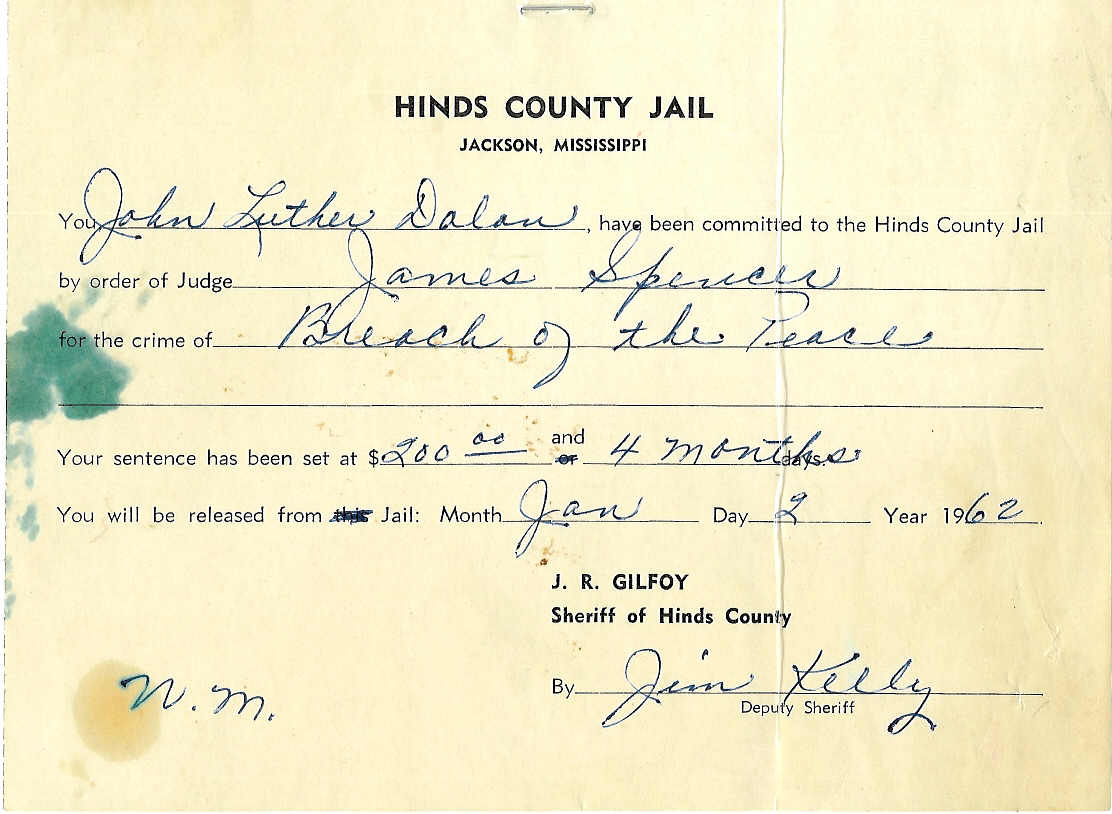 HINDS COUNTY JAIL
JACKSON, MISSISSIPPI
You John Luther Dolan, have been committed to the Hinds County Jail
by order of Judge James Spencer
for the crime of Breach of the Peace
Your sentence has been set at $200 00 and or 4 months days.
You will be released from this Jail: Month Jan Day 2 Year 1962.
J. R. GILFOY
Sheriff of Hinds County
By Jim Kelly
Deputy Sheriff
N.M.